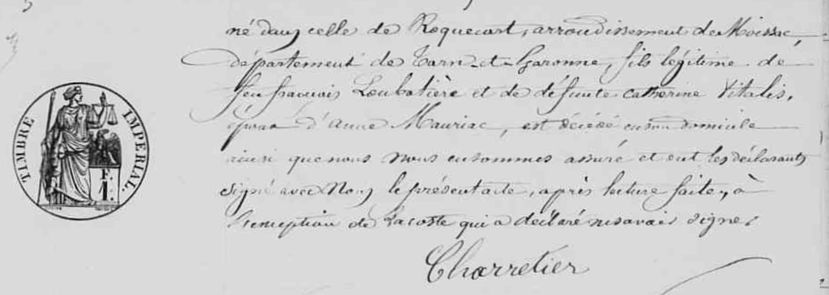 né dans celle de Roquecort, arrondissement de Moissac,
département de Tarn-et-Garonne, fils légitime de
feu françois Loubatière et de défunte Catherine Vitalis,
époux d'Anne Mauriac, est décédé en son domicile
ainsi que nous nous en sommes assuré et ont les déclarants
signé avec Nous le présent acte, après lecture faite, à
l'exception de Lacoste qui a déclaré ne savoir signer
Charretier
TIMBRE IMPERIAL.
1 F.